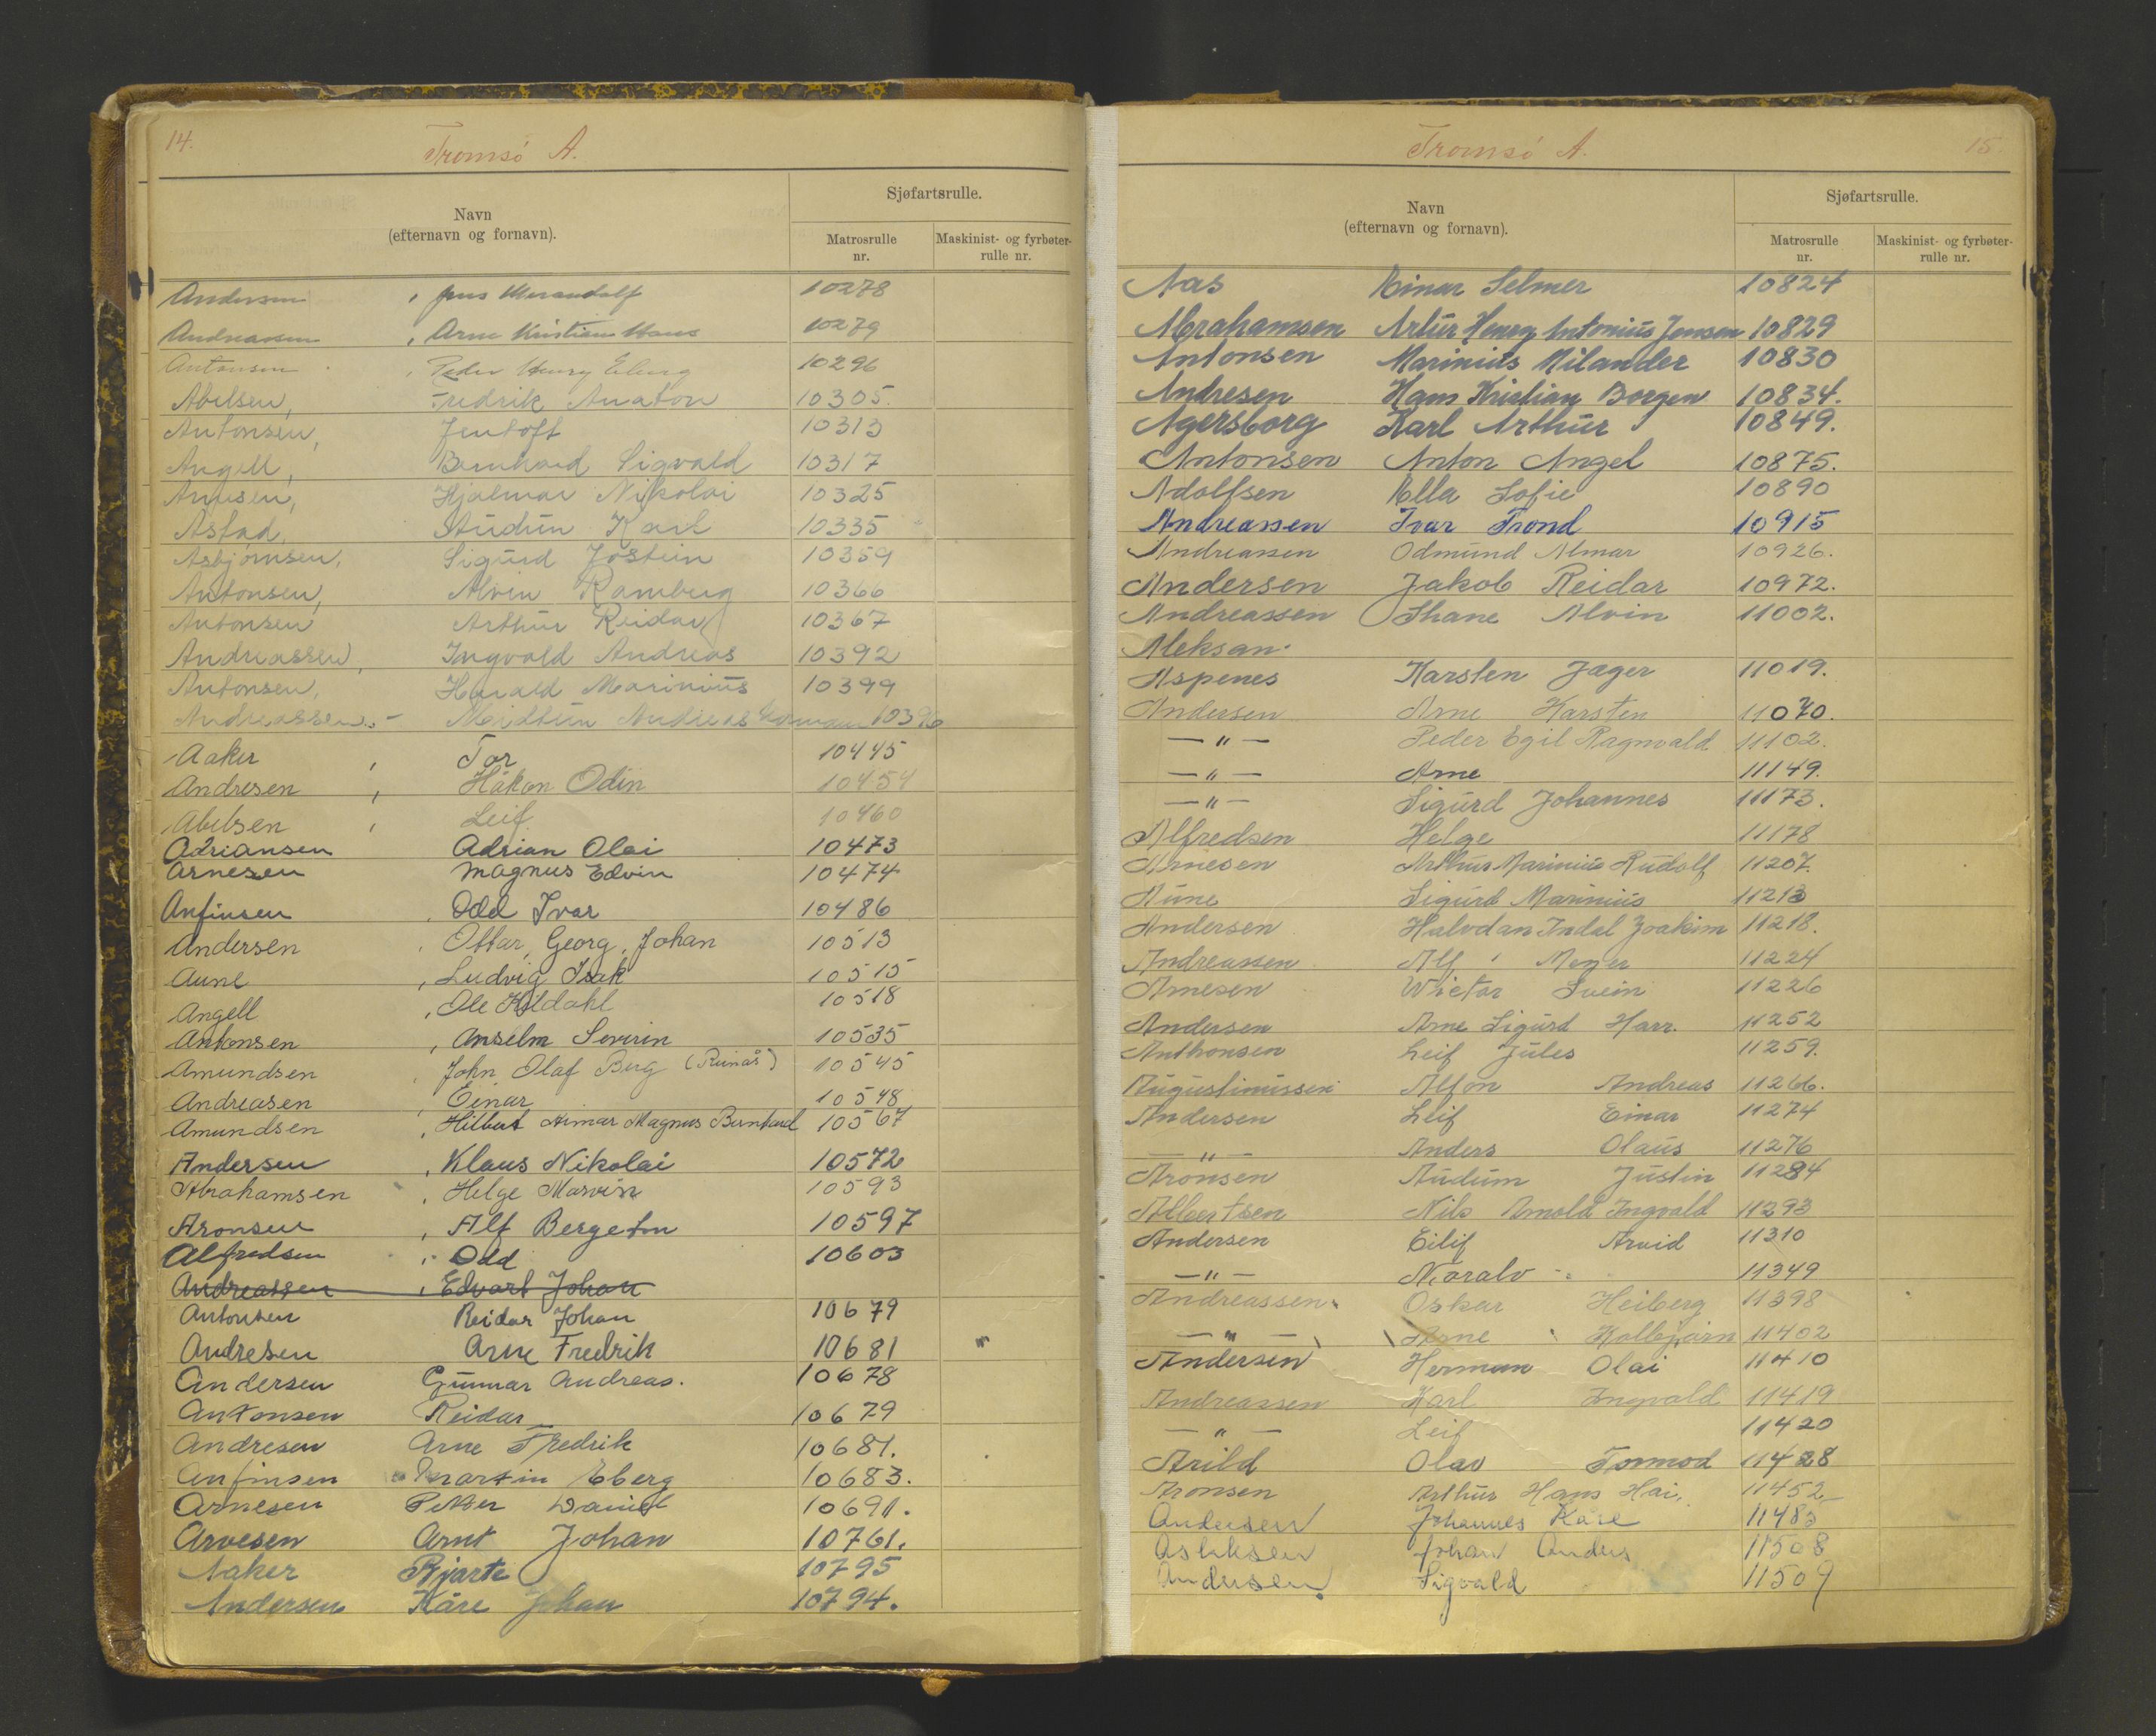 14.
Tromsö A.
Navn
(efternavn og fornavn).
Sjøfartsrulle.
Matrosrulle nr.
Maskinist- og fyrbøter-rulle nr.
Andersen, Jens 10278
Andreassen, Arne Kristian Hans 10279
Antonsen, Peder Henry Eberg 10296
Abelsen, Fredrik Anaton 10305.
Antonsen, Jentoft 10313
Angell, Bernhard Sigvald 10317
Arnesen, Hjalmar Nikolai 10325
Astad, Audun Karl 10335
Asbjørnsen, Sigurd Jostein 10359
Antonsen, Alvin Ramberg 10366
Antonsen Arthur Reidar 10367
Andreassen, Ingvald Andreas 10392
Antonsen, Harald Marinius 10399
Andreassen. - Meidtun Andreas 10396
Aaker, Tor 10445
Andresen, Håkon Odin 10454
Abelsen, Leif 10460
Adriansen Adrian Olai 10473
Arnesen Magnus Edvin 10474
Anfinsen, Odd Ivar 10486
Andersen, Ottar, Georg, Johan 10513
Aune, Ludvig Isak 10515
Angell, Ole Kildahl 10518
Antonsen, Anselm Severin 10535
Amundsen, John Olaf Berg (Reinås) 10545
Andreasen, Einar 10548
Amundsen, Hilbert Aimar Magnus Bernhard 10567
Andersen, Klaus Nikolai 10572
Abrahamsen, Helge Marvin 10593
Aronsen, Alf Bergeton 10597
Alfredsen, Odd 10603
Andreassen, Edvart Johan
Antonsen Reidar Johan 10679
Andresen Arne Fredrik 10681
Andersen Gunnar Andreas. 10678
Antonsen Reidar 10679
Andresen Arne Fredrik 10681.
Anfinsen Martin Eberg 10683.
Arnesen Petter Daniel 10691.
Arvesen Arnt Johan 10761.
Aaker Bjarte 10795
Andersen Kåre Johan 10794.
Tromsö A.
15.
Navn
(efternavn og fornavn).
Sjøfartsrulle.
Matrosrulle nr.
Maskinist- og fyrbøter-rulle nr.
Aas Einar Selmer 10824
Abrahamsen Artur Henry Antonius Jensen 10829
Antonsen Marinius Milander 10830
Andresen Hans Kristian Borgen 10834.
Agersborg Karl Arthur 10849.
Antonsen Anton Angel 10875.
Adolfsen Ella Sofie 10890
Andreassen Ivar Trond 10915
Andreassen Odmund Almar 10926.
Andersen Jakob Reidar 10972.
Andreassen Thane Alvin 11002.
Aleksan.
Aspenes Karsten Jager 11019.
Andersen Arne Karsten 11070.
— " — Peder Egil Ragnvald 11102.
— " — Arne 11149.
— " — Sigurd Johannes 11173.
Alfredsen Helge 11178
Arnesen Arthur Marinius Rudolf 11207.
Aune Sigurd Marinius 11213
Andersen Halvdan Indal Joakim 11218.
Andreassen Alf Meyer 11224
Arnesen Wictor Svein 11226
Andersen Arne Sigurd Harr. 11252
Anthonsen Leif Jules 11259.
Augustinussen Alfon Andreas 11266.
Andersen Leif Einar 11274
— " — Anders Olaus 11276
Aronsen Audum Justin 11284
Albertsen Nils Arnold Ingvald 11293
Andersen Eilif Arvid 11310
— " — Noralv 11349
Andreassen Oskar Heiberg 11398
— " — Arne Kolbjørn 11402
Andersen Herman Olai 11410
Andreassen Karl Ingvald 11419
— " — Leif 11420
Arild Olav Tormod 11428
Aronsen Arthur Hans Hai. 11452
Andersen Johannes Kåre 11483
Aslaksen Johan Anders 11508
Andersen Sigvald 11509